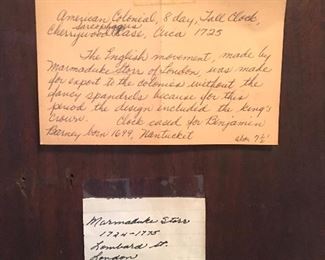 American Colonial, 8 day, Tall Clock,
sarcophagus
Cherrywood Case, Circa 1725
The English movement, made by
Marmaduke Storr of London was made
for export to the colonies without the
fancy spandrels because for this
period the design included the king's
crown. Clock cased for Benjamin
Barney born 1699, Nantucket
Marmaduke Storr
1724-1775
Lombard St.
London